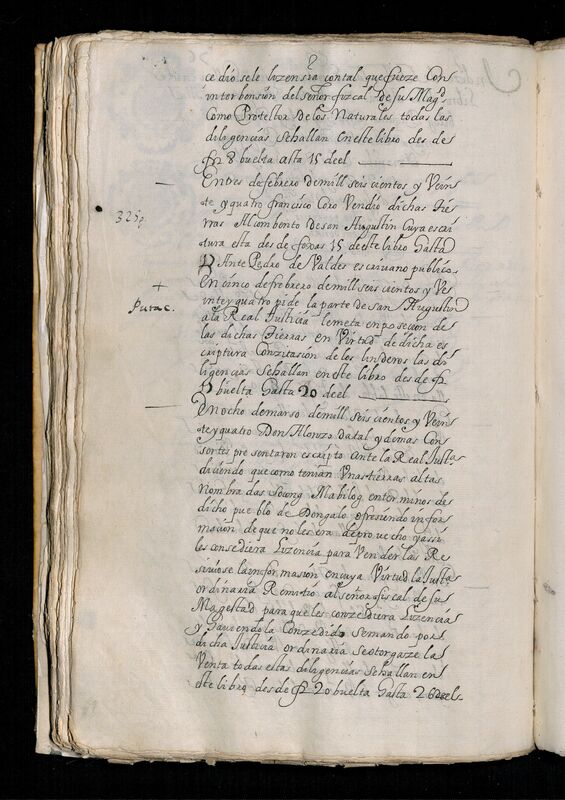 2
cediosele lizensia contal que fueze Con
interbension del señor fizcal De su Magd
Como Protector De los Naturales todas las
diligencias se hallan en este libro des de
fn 8 buelta asta 15 deel
En tres de febrero de mill seis cientos y Vein
te y quatro francisco Coxo Vendio dichas tie
rras Al combento De san Augustin Cuya escri
tura esta des de foxas 15 de este libro Hasta
Ante Pedro de Valdes escrivano publico
325p.
En cinco de frebrero de mill seis cientos y Ve
inte y quatro pide la parte de san Augustin
a la Real Justicia le meta en posecion de
las dichas Tierras en Virtud de dicha es
criptura Conzitasion de los linderos las di
ligencias se hallan en este libro des de
buelta Hasta 20 deel
Putac.
En ocho de marso de mill seis cientos y Vein
te y quatro Don Alonzo y demas Con
sortes presentaron escripto Ante la Real Justa
diziendo que como tenian Unas tierras altas
Nombradas Soung Mabilog en terminos de
dicho pueblo de Dongalo ofresiendo infor
masion de que no les era de provecho y assi
les consediera Lizencia para Venderlas Re
siviose la informasion en cuya Virtud la Justa
ordinaria Remitio al señor fiscal de su
Magestad para que les conzediera Lizencia
y Haviendola Conzedido se mando por
dicha Justicia ordinaria se otorgaze la
Venta todas estas diligencias se hallan en
este libro desde 20 buelta Hasta 26 deel